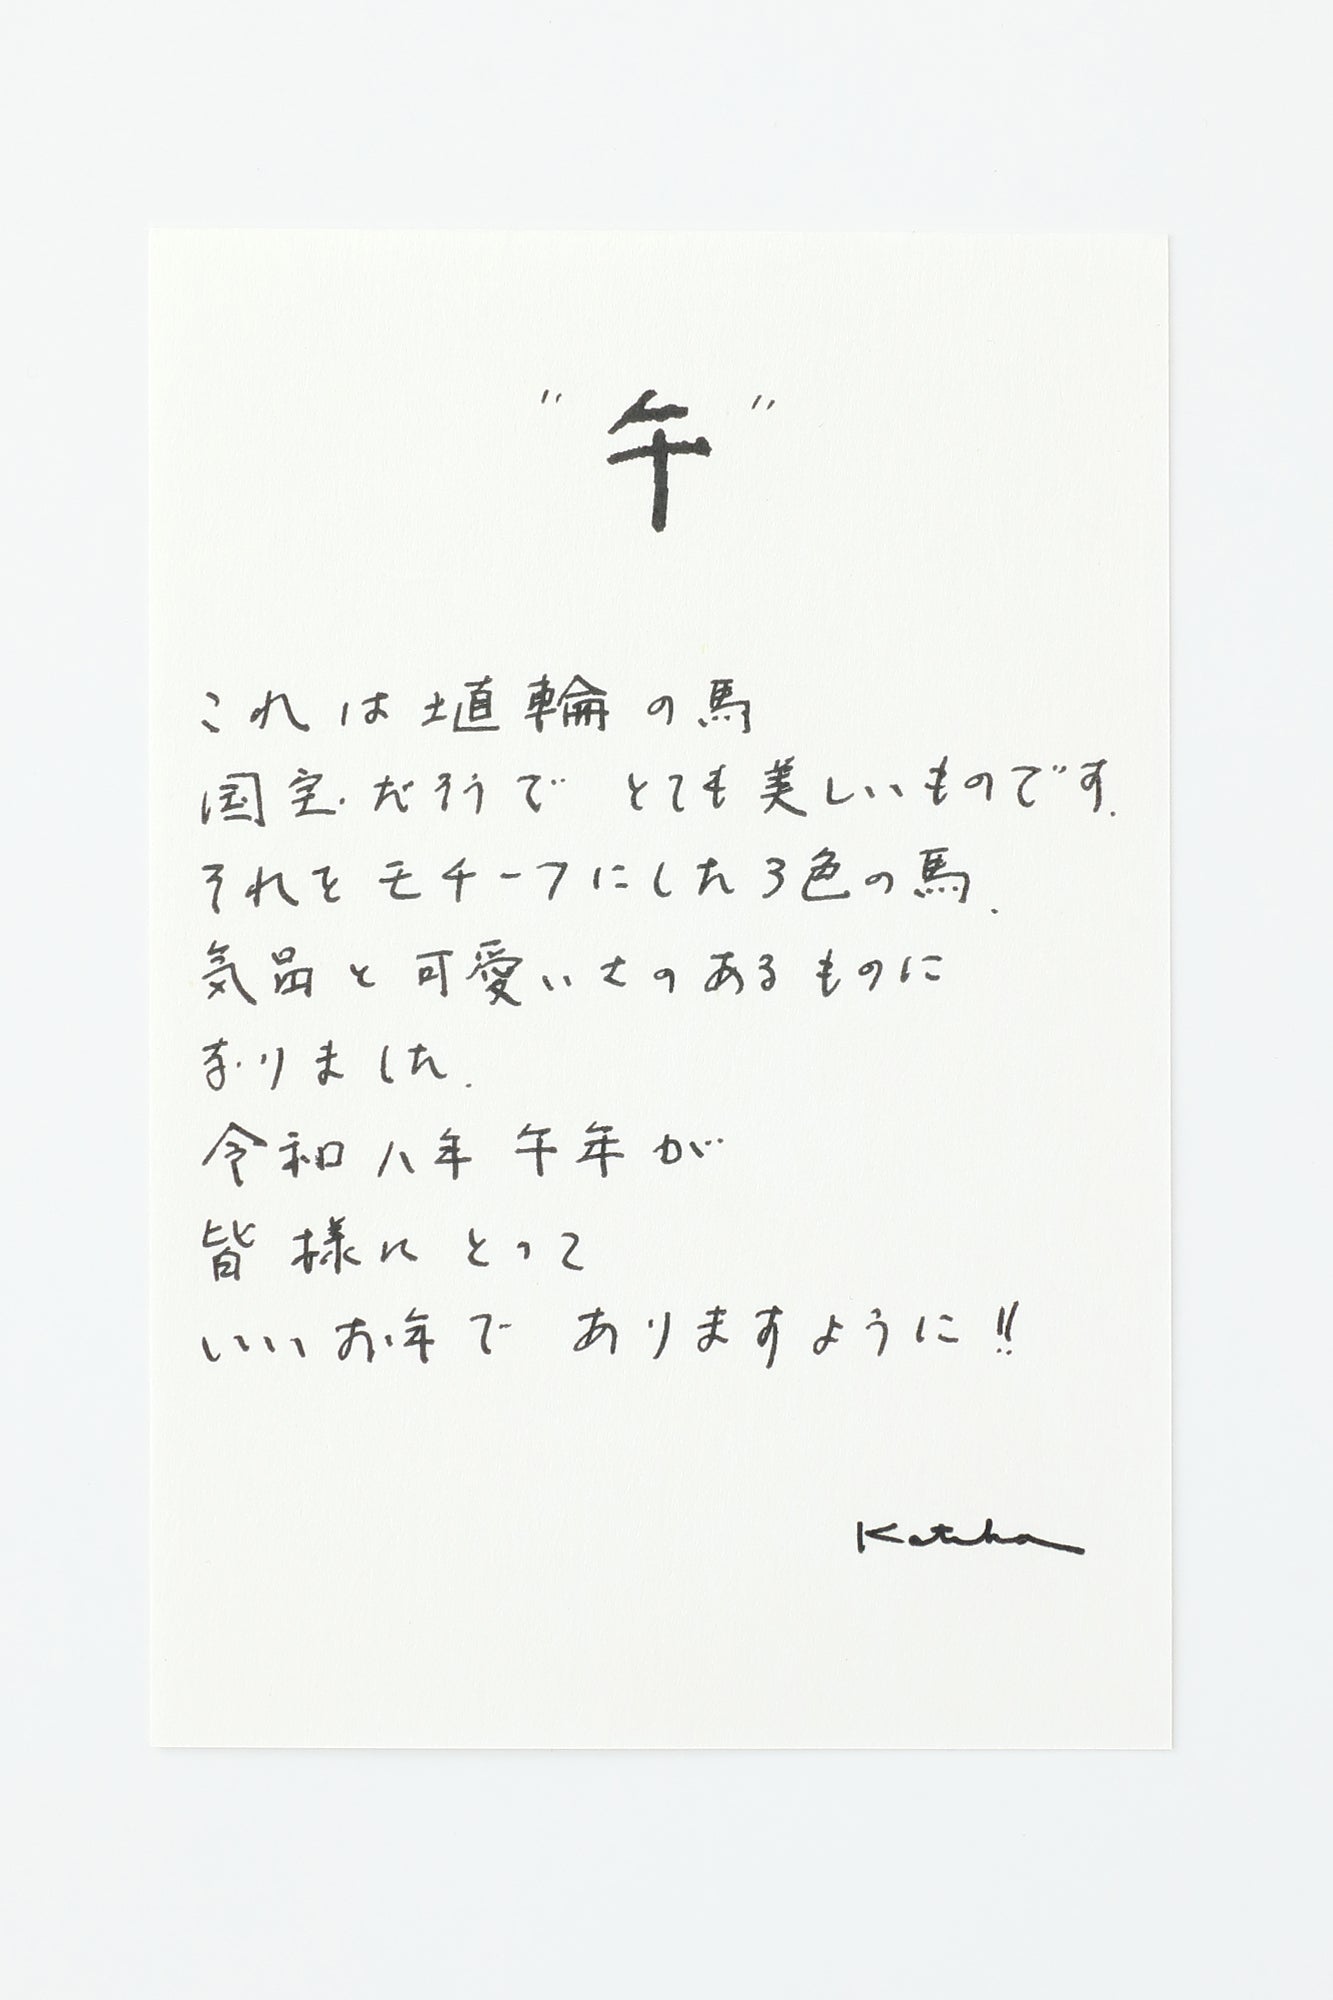 "午"
これは埴輪の馬
国宝だそうで とても美しいものです.
それをモチーフにした3色の馬.
気品と可愛いさのあるものに
なりました.
令和八年 午年が
皆様にとって
いいお年で ありますように!!